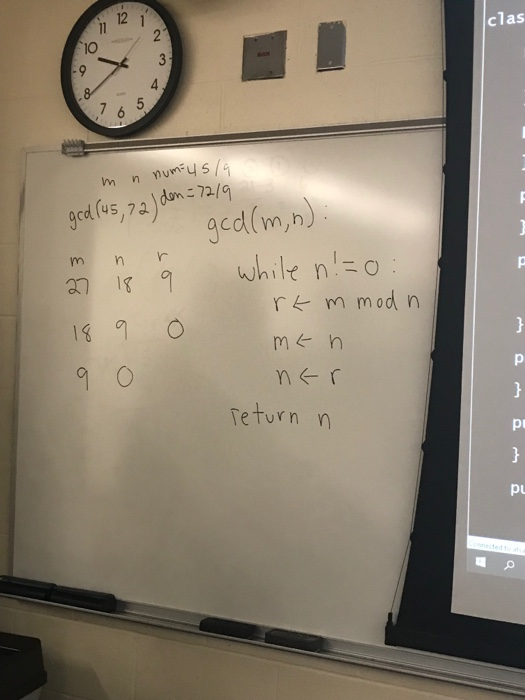 12
11 1
10 2
9 3
8 4
7 5
6
m n num=45/9
gcd(45,72) den=72/9
gcd(m,n):
m n r
27 18 9
18 9 0
9 0
while n!=0:
r ← m mod n
m ← n
n ← r
return n
clas
p
}
p
}
p
}
pu
}
pu